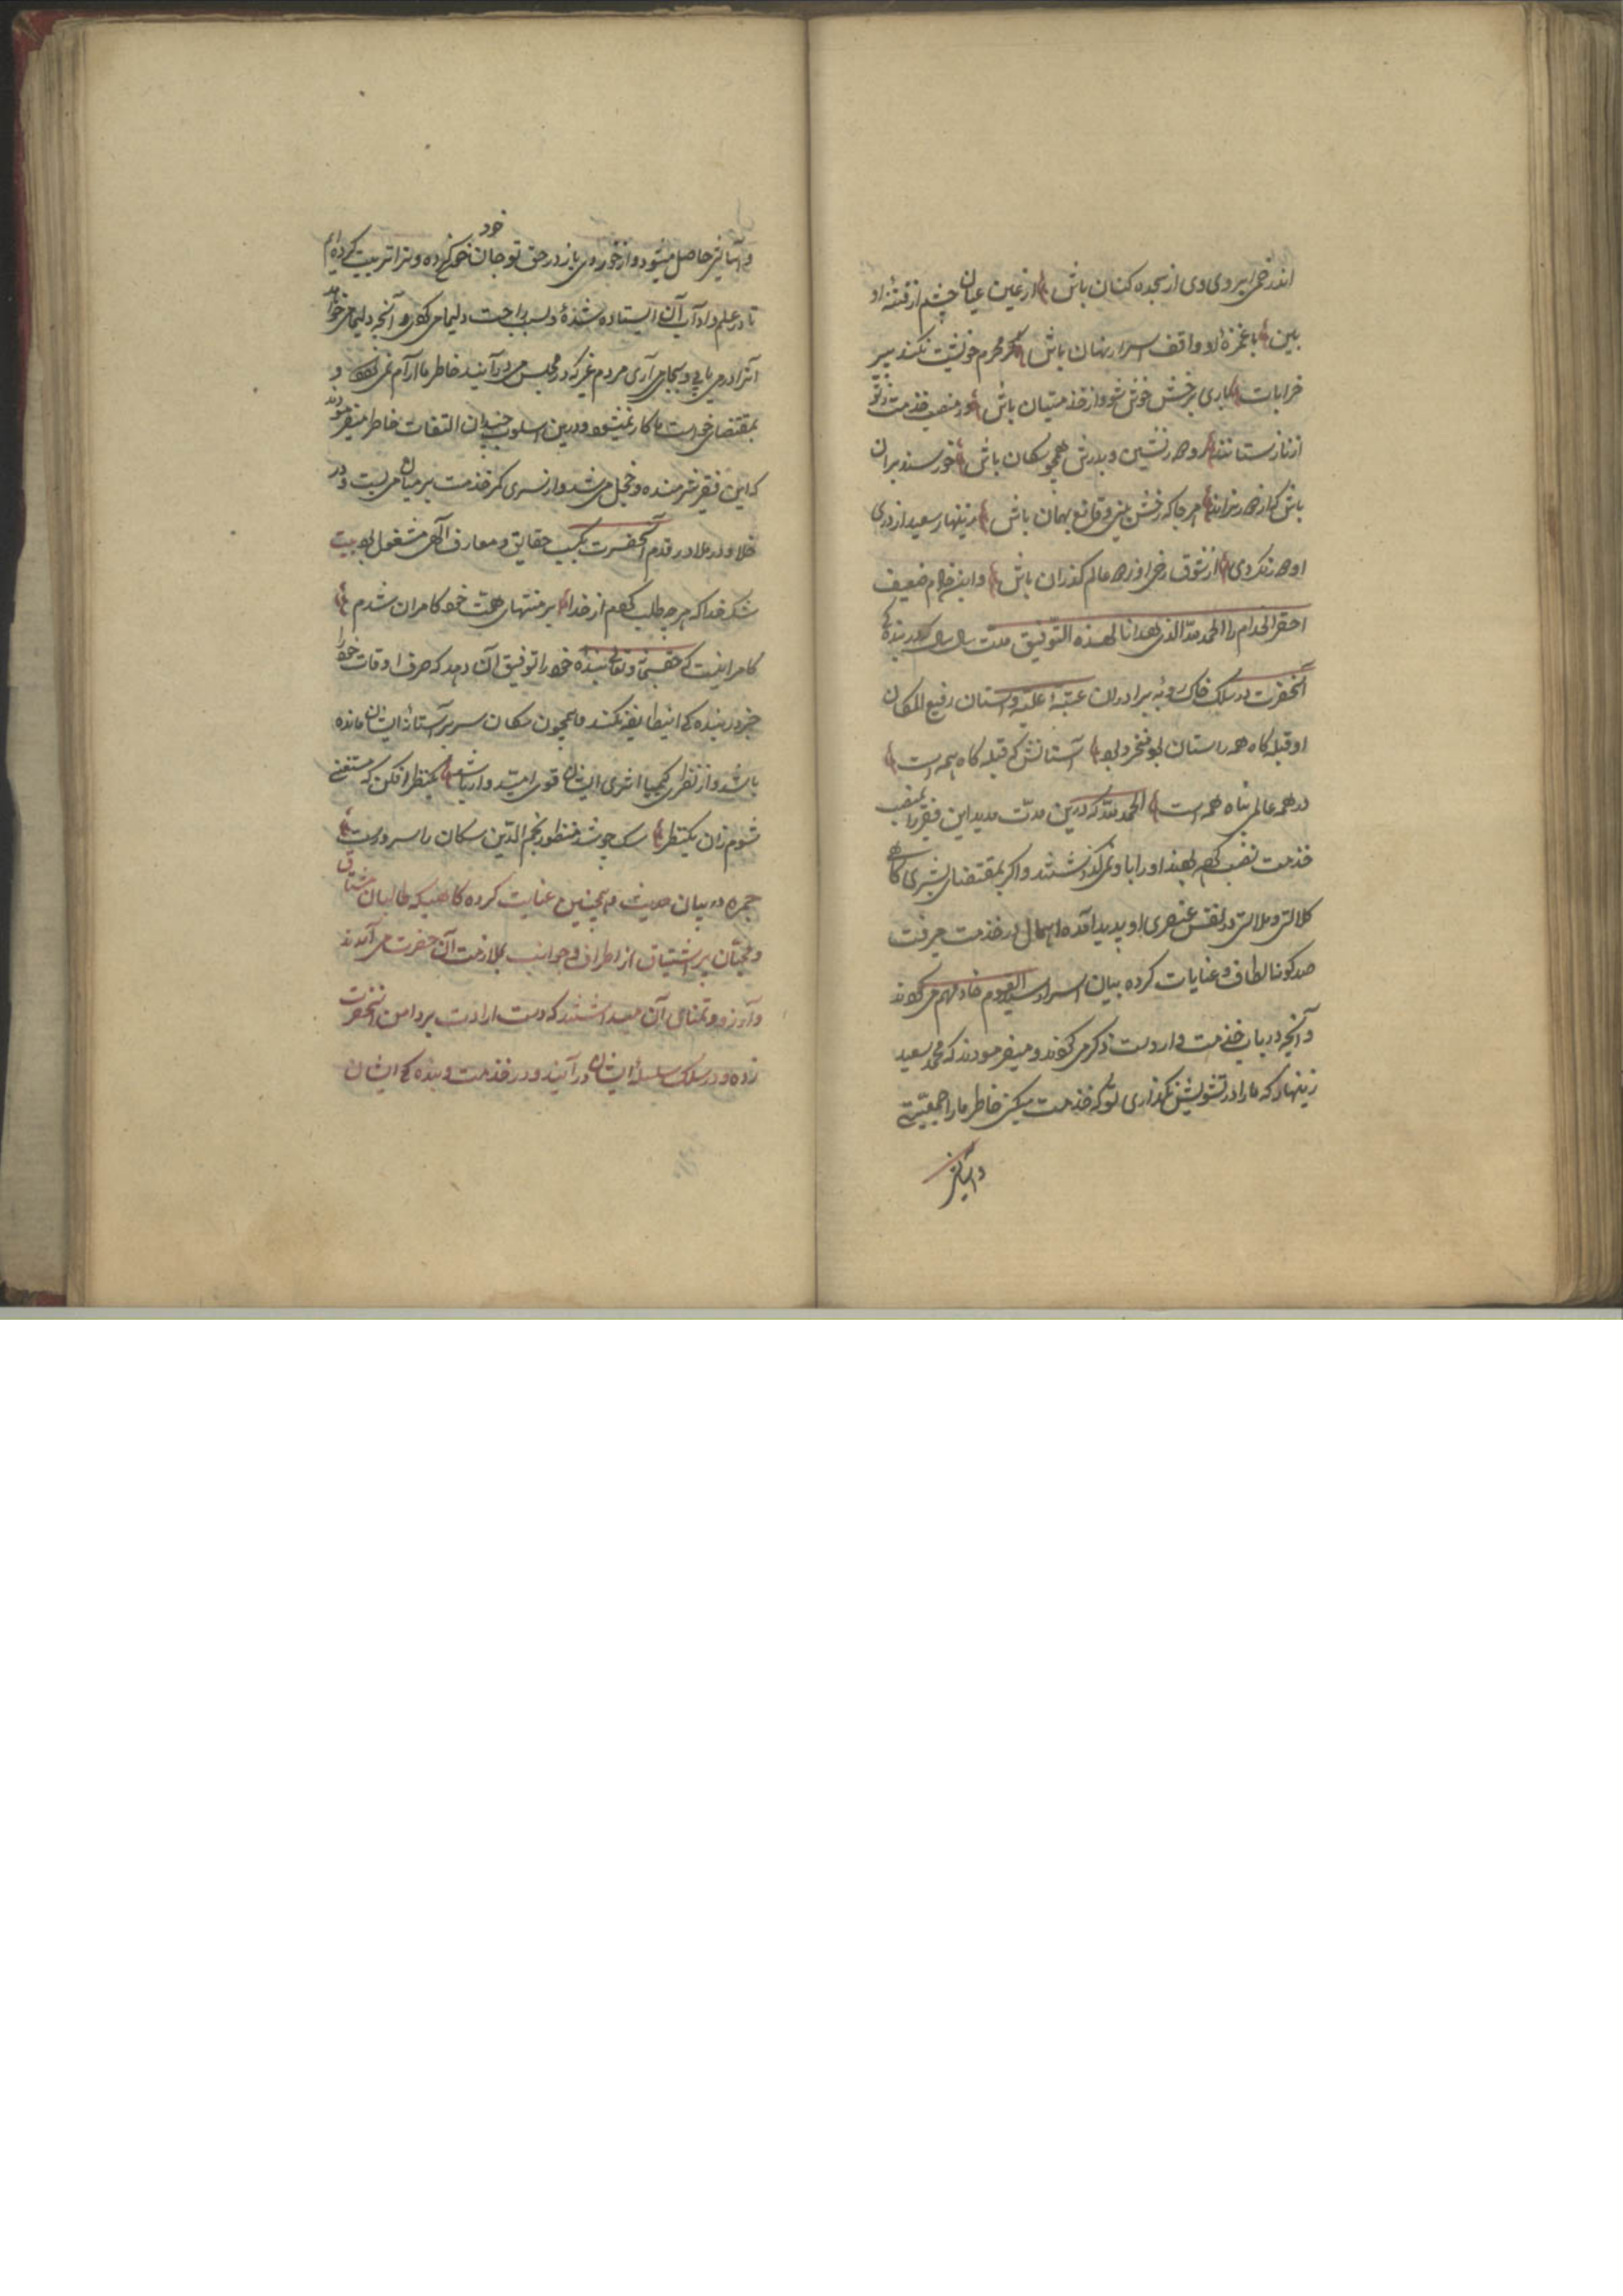 اندر خم ابروی وی از سجده کنان باش از عین عیان چشم از فتنهٔ او
بین با غمزهٔ او واقف اسرار نهان باش گر محرم خویشت نکند پیر
خرابات باری برخش خوش شو و از خدمتیان باش ور منصب خدمت ز تو
از ناز ستانند رو در نشین و بدرش همچو سکان باش خورسند بران
باش کزان در نراند هر جا که رخش بینی قانع بهمان باش زینهار سعید از دری
او در نکردی از شوق رخ او زره عالم گذران باش و این غلام ضعیف
احقر الخدام را الحمد لله الذی هدانا لهذه التوفیق مدت سال که در بنده کی
آنحضرت در سلک خاک روبه برادران عتبهٔ علیه وستان رفیع المکان
او قبله کاه همه راستان بود مفتخر بود آستانش که قبله کاه همه است
در همه عالم پناه همه است الحمد لله که درین مدت مدید این فقیر را بمنصب
خدمت نصب کرده بودند او را باو نمی گذشتند و اگر بمقتضای بشری کاهی
کلالتی و ملالتی در نفس عنصری او پدید آمده اهمال در خدمت میرفت
صد کونه الطاف و عنایات کرده بیان اسرار سید القوم خادمهم می کردند
و آنچه در باب خدمت وارد است ذکر می کردند و میفرمودند که محمد سعید
زینهار که ما را در تشویش نگذاری تو که خدمت میکنی خاطر ما را جمعیتی
و آسانی
خود
و آسانی حاصل میشود و از خوردی باز در حق تو جان خود کرده و ترا تربیت کرده ایم
تا در علم و ادب آن ایستاده شدهٔ و سبب راحت دلیما می کردی و آنچه دلیما می خواهد
آنرا در می یابی و بجا می آری مردم غیر که در مجلس می در آیند خاطر ما آرام نمی کیرد و
بمقتضای خواست ما کار نمیشود و درین اسلوب چندان التفات خاطر میفرمودند
که این فقیر شرمنده و خجل می شد و از سری کمر خدمت بر میان می بست و در
خلا و در ملا در قدم آنحضرت بکسب حقایق و معارف آلهی مشغول بود بیت
شکر خدا که هر چه طلب کردم از خدا بر منتهای همت خود کامران شدم
کامرانیست که حق سبحانه و تعالی بنده خود را توفیق آن دهد که صرف اوقات خود را
جز در بنده کی این طایفه نکند و همچون سکان سر بر آستانهٔ ایشان مانده
باشد و از نظر کیمیا اثری ایشان قوی امیدوار باشد یکنظر افکن که مستغنی
شوم زان یکنظر سک چو شد منظور نجم الدین سکان را سرورست
جمره در بیان حدیث همچنین عنایت کرده کاهیکه طالبان مشتاق
و محبان پر اشتیاق از اطراف و جوانب بملازمت آن حضرت می آمدند
و آرزو و تمنای آن میداشتند که دست ارادت بر دامن آنحضرت
زده و در سلک سلسلهٔ ایشان در آیند و در خدمت و بنده کی ایشان